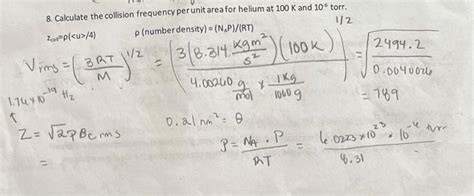 8. Calculate the collision frequency per unit area for helium at 100 K and 10⁻⁶ torr.
z_coll=ρ(<u>/4) ρ (number density) = (NₐP)/(RT)
V rms = (3RT/M)^1/2 = (3(8.314 kgm²/s²)(100K)/4.00260 g/mol x 1kg/1000g)^1/2 = √2494.2/0.0040026
= 789
1.74 x 10⁻¹⁹ Hz
↑
0.21 nm² = θ
Z = √2 ρ θ c rms
=
P = NA · P/RT = 6.0223x10²³ · 10⁻⁶ torr/8.31